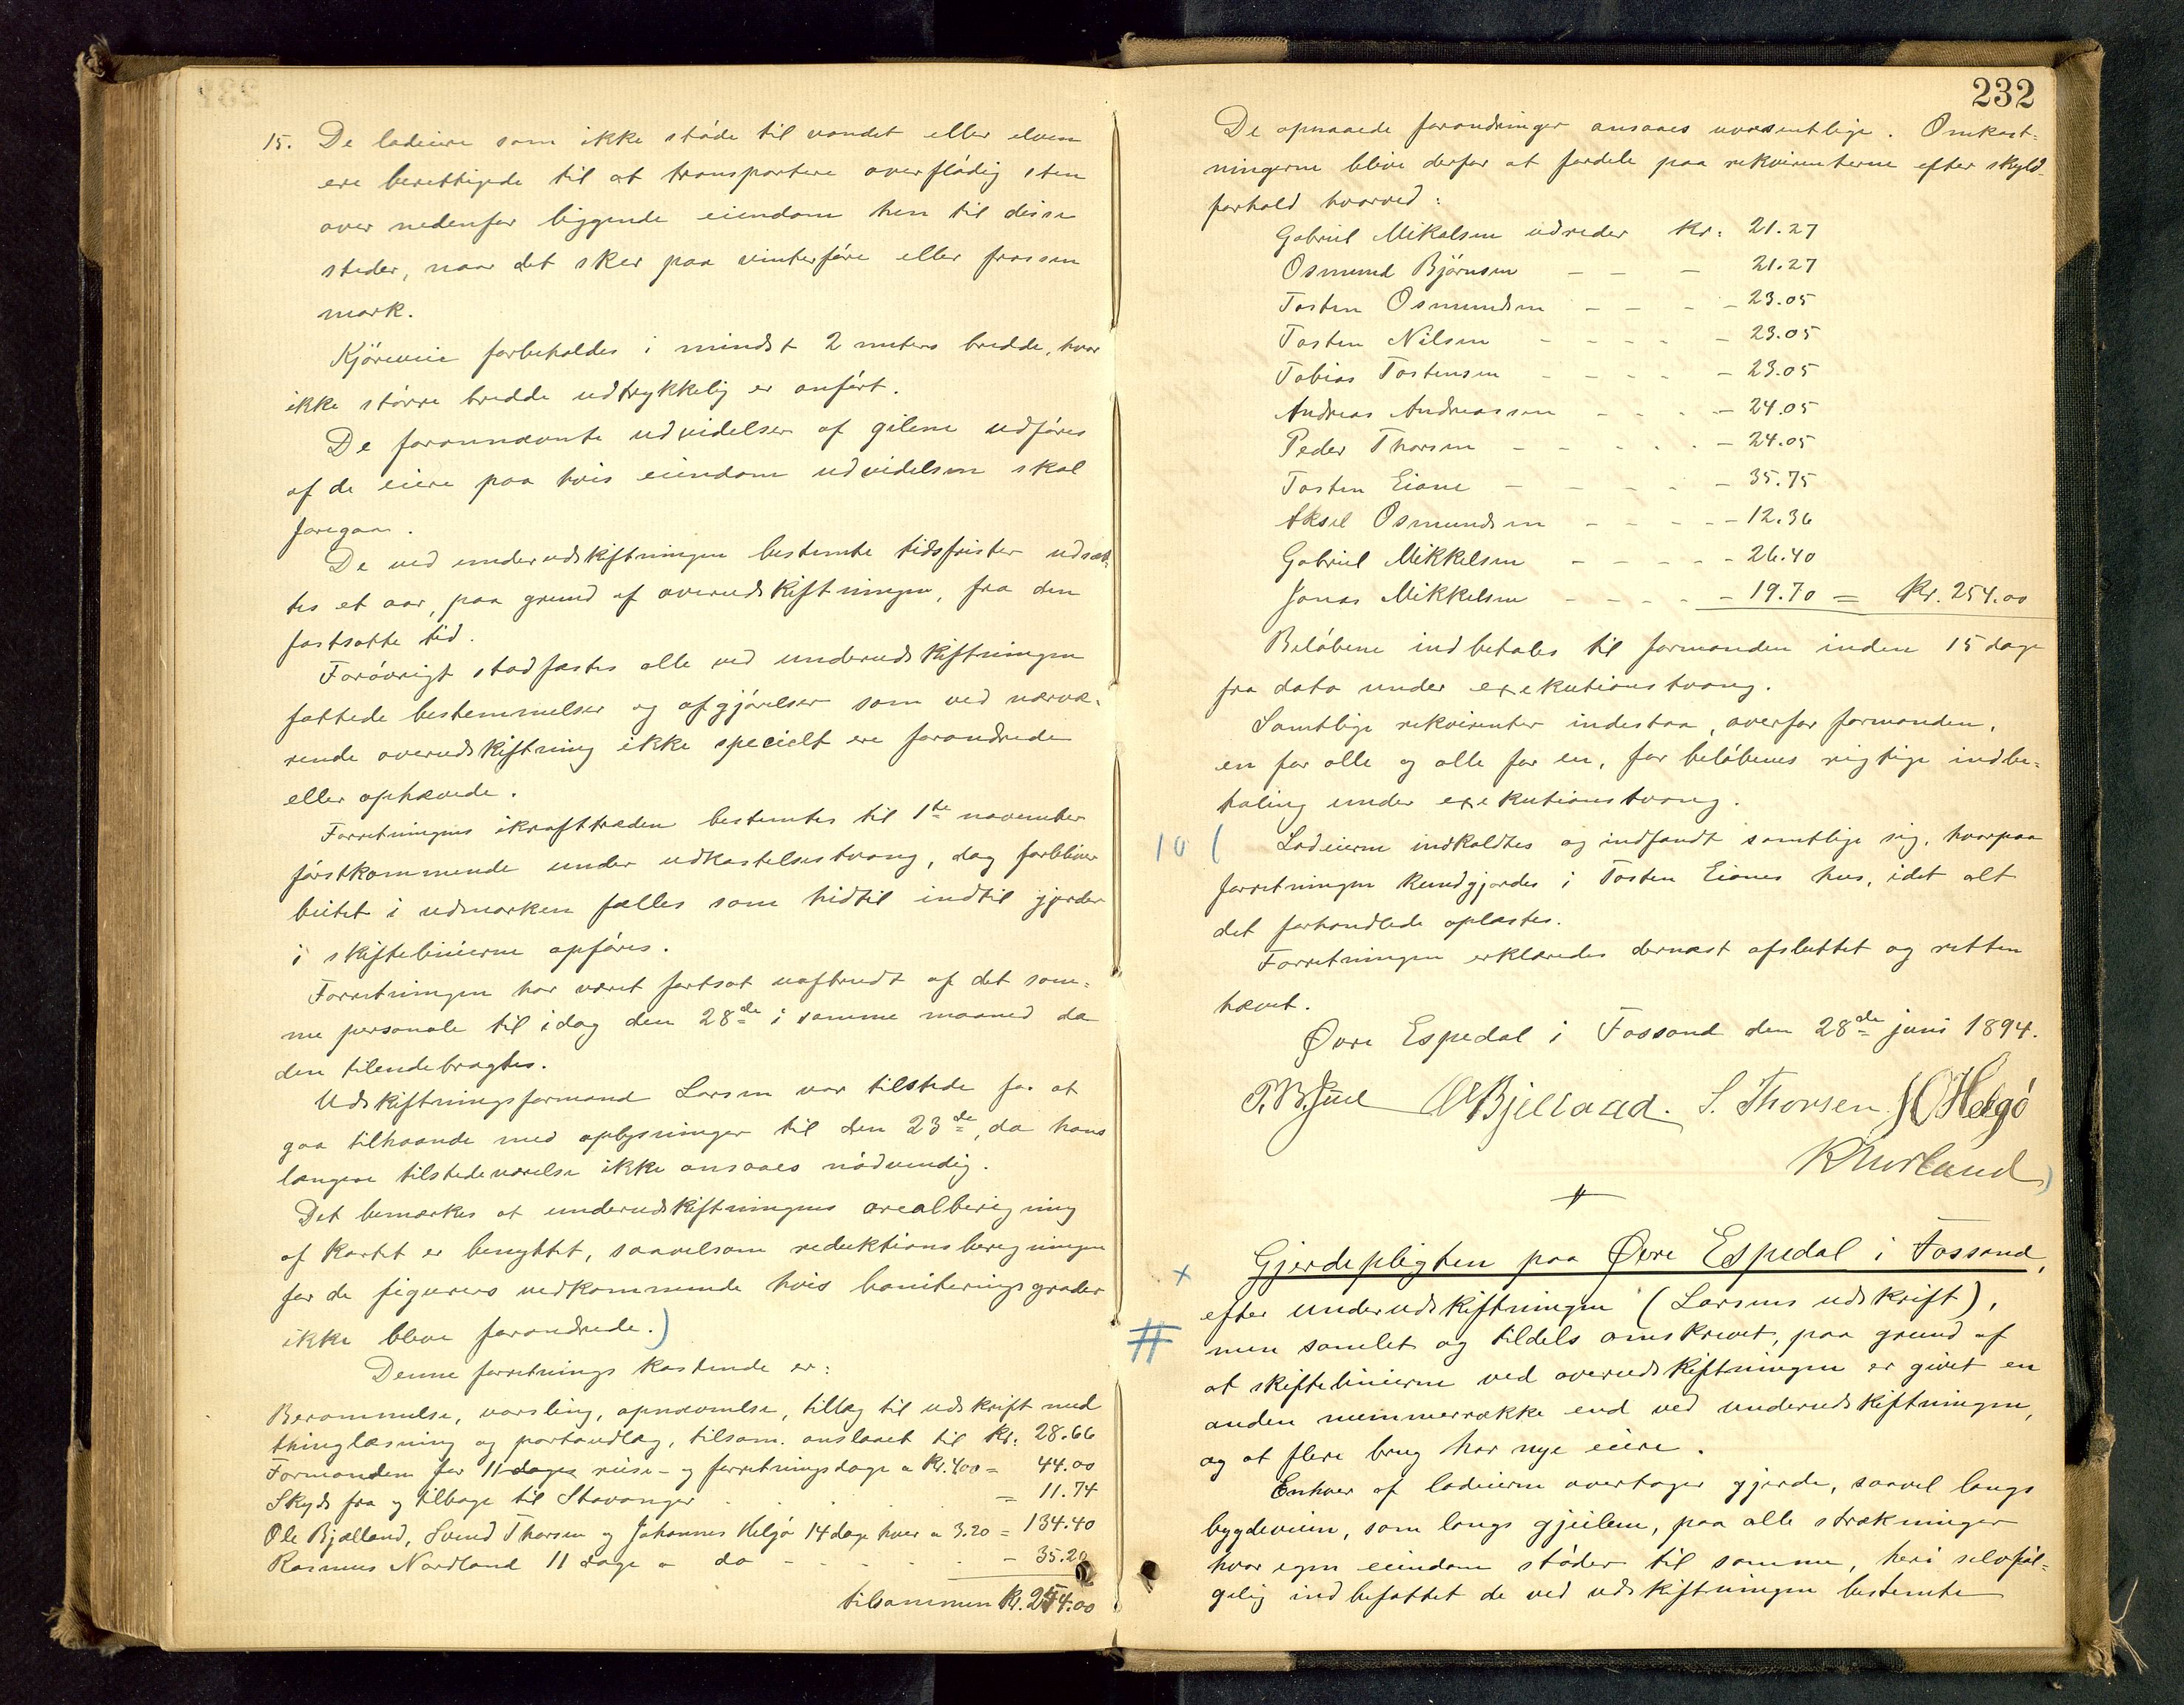 15. De lodeiere som ikke støde til vandet eller elven
ere berettigede til at transportere overflødig sten
over nedenfor liggende eiendom hen til disse
steder, naar det sker paa vinterføre eller frossen
mark.
Kjøreveie forbeholdes i mindst 2 meters bredde, hvor
ikke større bredde udtrykkelig er anført.
De forannævnte udvidelser af gilene udføres
af de eiere paa hvis eiendom udvidelsen skal
foregaa.
De ved underudskiftningen bestemte tidsfrister udsæt-
tes et aar, paa grund af overudskiftningen, fra den
fastsatte tid.
Forøvrigt stadfæstes alle ved underudskiftningen
fattede bestemmelser og afgjørelser som ved nærvæ-
rende overudskiftning ikke specielt ere forandrede
eller ophævede.
Forretningens ikrafttræden bestemtes til 1ste november
førstkommende under udkastelsestvang, dog forbliver
beitet i udmarken fælles som hidtil indtil gjerder
i skiftelinierne opføres.
Forretningen har været fortsat uafbrudt af det sam-
me personale til idag den 28de i samme maaned da
den tilendebragtes.
Udskiftningsformand Larsen var tilstede for at
gaa tilhaande med oplysninger til den 23de, da hans
længere tilstedeværelse ikke ansaaes nødvendig.
Det bemærkes at underudskiftningens arealberegning
af kartet er benyttet, saavelsom reduktionsberegningen
for de figurers vedkommende hvis boniteringsgrader
ikke bleve forandrede.)
Denne forretnings kostende er:
Berammelse, varsling, opnævnelse, tillæg til udskrift med
thinglæsning og portoudlæg, tilsam. anslaaet til Kr. 28.66
Formanden for 11 dages reise- og forretningsdage a Kr. 4.00 = 44.00
Skyds fra og tilbage til Stavanger = 11.74
Ole Bjælland, Svend Thorsen og Johannes Helgø 14 dage hver a 3.20 = 134.40
Rasmus Nordland 11 dage a do - 35.20
tilsammen Kr. 254.00
232
De opnaaede forandringer ansaaes uvæsentlige. Omkost-
ningerne blive derfor at fordele paa rekvirenterne efter skyld-
forhold hvorved:
Gabriel Mikalsen udreder Kr. 21.27
Osmund Bjørnsen - - - 21.27
Tosten Osmundsen - - - - 23.05
Tosten Nilsen - - - - - 23.05
Tobias Tostensen - - - - - 23.05
Andreas Andreassen - - - - 24.05
Peder Thorsen - - - - - 24.05
Tosten Eiane - - - - - 35.75
Aksel Osmundsen - - - - - 12.36
Gabriel Mikkelsen - - - - - 26.40
Jonas Mikkelsen - - - - - 19.70 = Kr. 254.00
Beløbene indbetales til formanden inden 15 dage
fra dato under exekutionstvang.
Samtlige rekvirenter indestaa, overfor formanden,
en for alle og alle for en, for beløbenes rigtige indbe-
taling under exekutionstvang.
10 ( Lodeierne indkaldtes og indfandt samtlige sig, hvorpaa
forretningen kundgjordes i Tosten Eianes hus, idet alt
det forhandlede oplæstes.
Forretningen erklæredes dernæst afsluttet og retten
hævet.
Øvre Espedal i Fossand den 28de juni 1894.
P. B. Juel O Bjelland. S. Thorsen J O Helgø
R Norland)
#
x Gjerdepligten paa Øvre Espedal i Fossand,
efter underudskiftningen (Larsens udskrift),
# men samlet og tildels omskrevet, paa grund af
at skiftelinierne ved overudskiftningen er givet en
anden nummerrække end ved underudskiftningen,
og at flere brug har nye eiere.
Enhver af lodeierne overtager gjerde, saavel langs
bygdeveien, som langs gjeilene, paa alle strækninger
hvor egen eiendom støder til samme, heri selvføl-
gelig indbefattet de ved udskiftningen bestemte